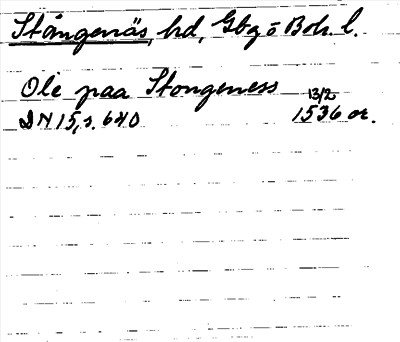 Stångenäs hd, Gbg o Boh. l.
Ole paa Stongeness 13/2
DN 15, s. 640 1536 or.